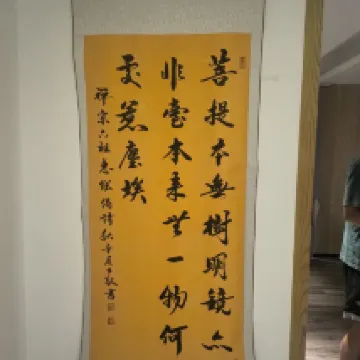 菩提本無樹明鏡亦
非臺本來無一物何
處惹塵埃
禪宗六祖惠能偈